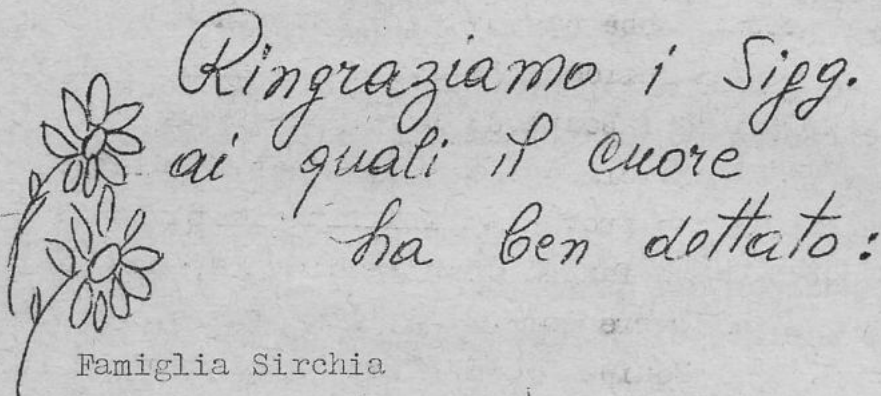 Ringraziamo i Sigg.
ai quali il cuore
ha ben dettato:
Famiglia Sirchia